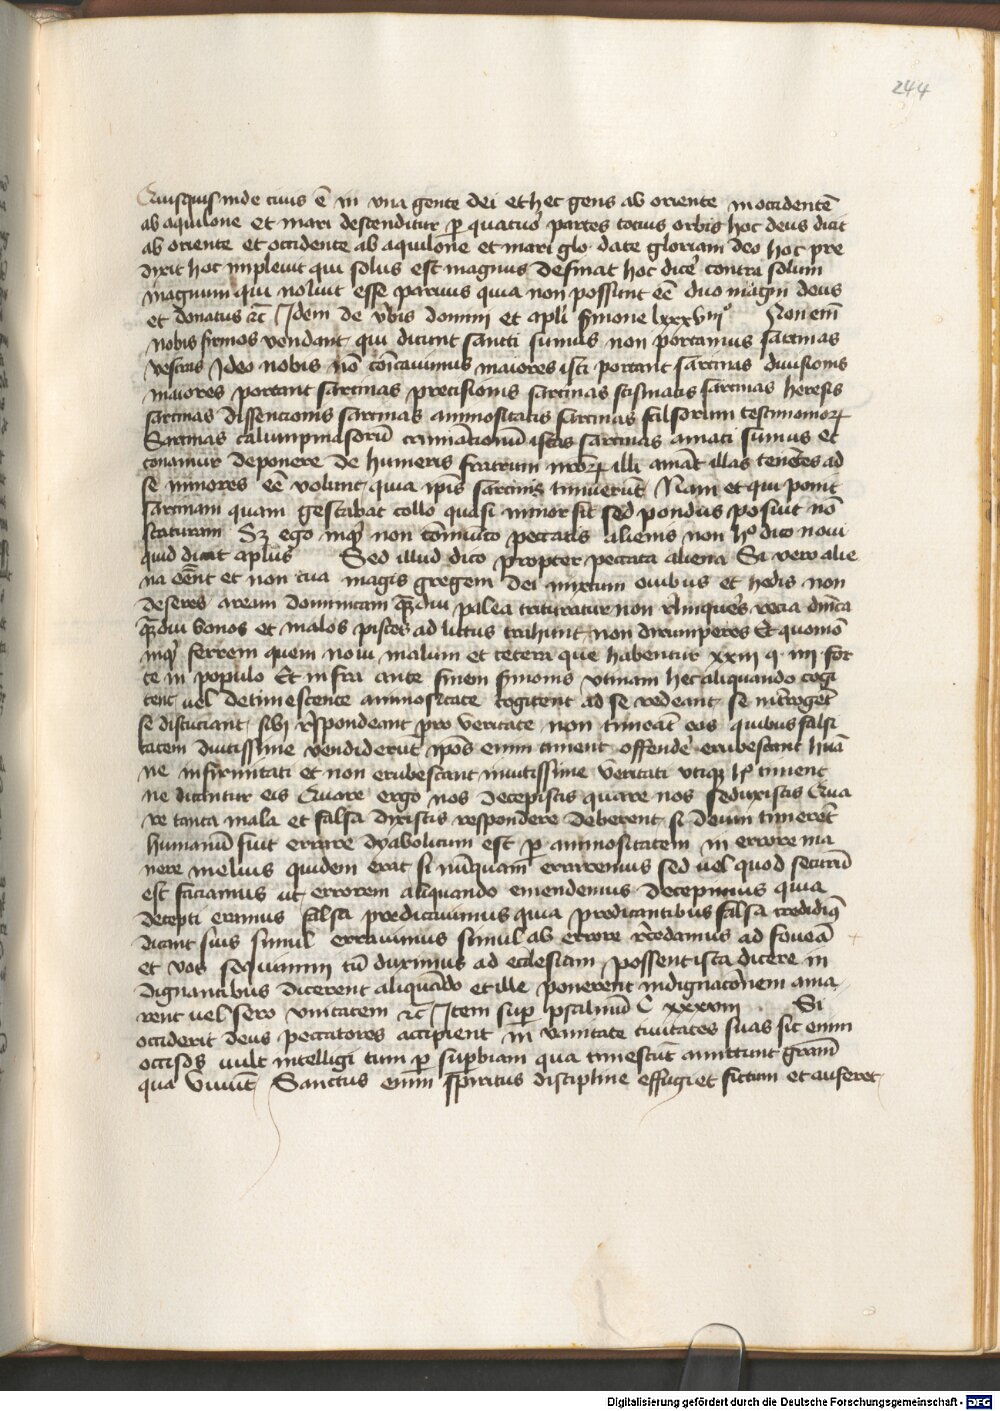 244
Quisquis inde ciuis ē in vna gente dei et hec gens ab oriente in occidentē
ab aquilone et mari descenditur ꝑ quatuor partes tocius orbis hoc deus dicit
ab oriente et occidente ab aquilone et mari glo. date gloriam deo hoc pre
dixit hoc impleuit qui solus est magnus desinat hoc dicere contra solum
magnum qui noluit esse paruus quia non possunt eē duo magni deus
et donatus ꝛc Idem de v'bis domini et apli sermone lxxxviiiº Non eni
nobis firmos vendant qui dicunt sancti sumus non portamus sarcinas
vestras Ideo nobis nō cōicamus maiores isti portant sarcinas diuisionis
maiores portant sarcinas precisionis sarcinas scismatis sarcinas heresis
sarcinas dissencionis sarcinas animositatis sarcinas falsorum testimoniorꝝ
Sarcinas calumpniosarū criminationū istas sarcinas amati sumus et
conamur deponere de humeris fratrum nr̄orꝝ illi amāt illas tenētes ad
se minores eē volunt quia ip̄is sarcinis timuerūt Nam et qui ponit
sarcinam quam gestabat collo quasi minor fit sed pondus posuit nō
staturam Sꝫ ego inqꝫ non cōmuto peccatis alienis non hº dico noui
quid dicat aplus Sed illud dico propter peccata aliena Si vero alie
na eēnt et non tua magis gregem dei mixtum ouibus et hedis non
deseres aream dominicam qꝫdiu palea trituratur non relinqueres recia dnica
qꝫdiu bonos et malos pisces ad litus trahunt non dirumperes Et quomō
inqꝫ ferrem quem noui malum et cetera que habentur xxiii q. iiii for
te in populo Et infra ante finem sermonis vtinam hec aliquando cogi
tent vel detinescente animositate cogitent ad se redeant se int'rogent
se discuciant sibi respondeant pro veritate non timeāt eos quibus falsi
tatem diutissime vendiderūt ip̄os enim timent offendere erubescant huā
ne infirmitati et non erubescant inuictissime veritati vtiqꝫ hº timent
ne dicantur eis Quare ergo nos decepistis quare nos seduxistis Qua
re tanta mala et falsa dixistis respondere deberent si deum timerēt
humanū fuit errare dyabolicum est ꝑ animositatem in errore ma
nere melius quidem erat si nūquam erraremus sed vel quod secūdū
est faciamus ut errorem aliquando emendemus decepimus quia
decepti eramus falsa predicauimus quia predicantibus falsa credidimꝰ
dicant suis simul errauimus simul ab errore recedamus ad foueā
et vos sequimini cū duximus ad ecclesiam possent ista dicere in
dignantibus dicerent aliquādo et ille ponerent indignacōnem ama
rent vel sero vnitatem ꝛc Item suꝑ psalmū C xxxviii . Si
occiderit deus peccatores accipient in vanitate ciuitates suas sic enim
occisos vult intelligi cum ꝑ suꝑbiam qua tumescūt amittunt grām
qua viuūt Sanctus enim spiritus discipline effugiet fictum et auferet